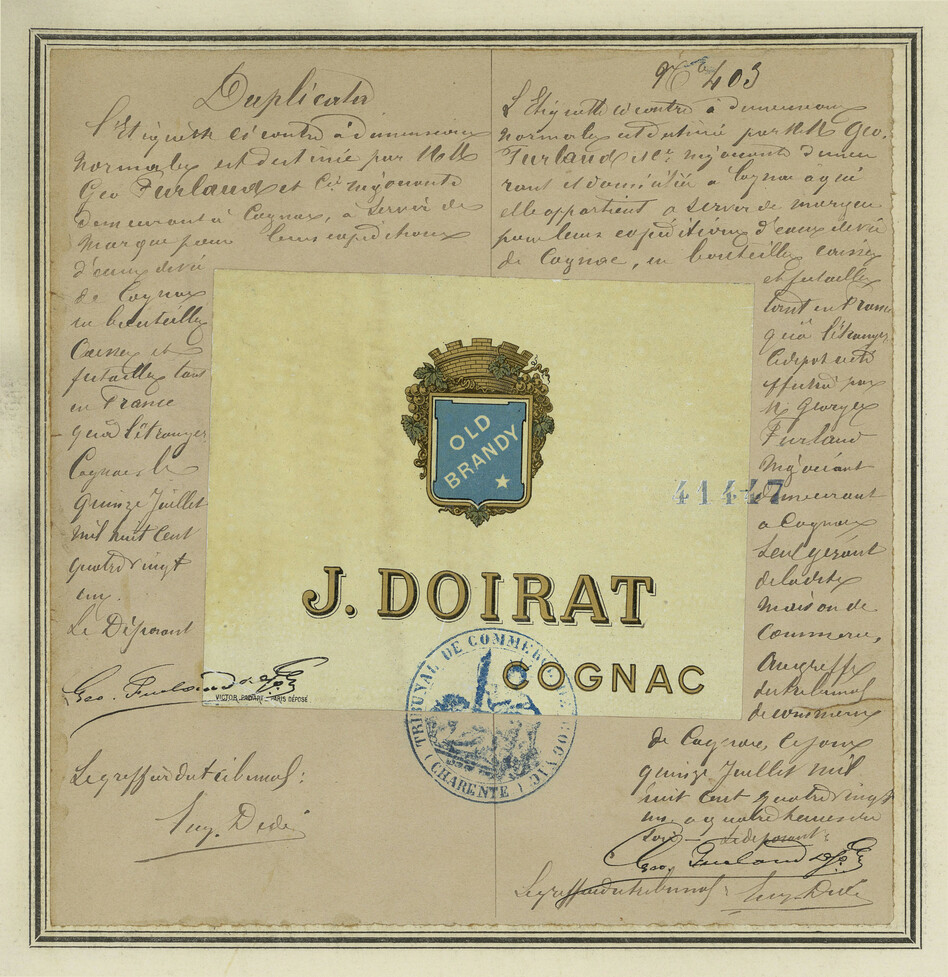 Duplicata
l'Etiquette ci contre à dimensions
normales est destinée par MM
Geo Furlaud et Cie négociants
demeurant à Cognac, à servir de
marque pour leurs expéditions
d'eaux de vie
de Cognac
en bouteilles
Caisses et
futailles tant
en France
qu'à l'étranger
Cognac le
quinze Juillet
mil huit cent
quatre vingt
un.
Le Déposant
Geo. Furlaud & Cie
Le greffier du tribunal:
Eug. Dedé
No 403
L'Etiquette ci contre à dimensions
normales est destinée par MM Geo.
Furlaud et Cie négociants demeu
rant et domiciliés à Cognac à qui
elle appartient à servir de marque
pour leurs expéditions d'eaux de vie
de Cognac, en bouteilles caisses
et futailles
tant en France
qu'à l'étranger
le dépôt en été
effectué par
M. Georges
Furlaud
négociant
demeurant
à Cognac
seul gérant
de la dite
maison de
commerce,
au greffe
du tribunal
de commerce
de Cognac, ce jour
quinze Juillet mil
huit cent quatre vingt
un à quatre heures du
soir le déposant:
Geo. Furlaud & Cie
Le greffier du tribunal: Eug. Dedé
OLD
BRANDY
41447
J. DOIRAT
COGNAC
VICTOR PALYART PARIS DÉPOSÉ
TRIBUNAL DE COMMERCE DE COGNAC
(CHARENTE)